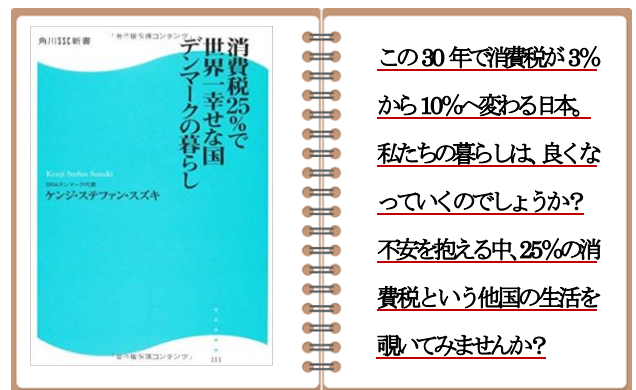 角川SSC新書
「著作権保護コンテンツ」
消費税25%で
世界一幸せな国
デンマークの暮らし
Kenji Stefan Suzuki
SRAデンマーク代表
ケンジ・ステファン・スズキ
「著作権保護コンテンツ」
111
この30年で消費税が3%
から10%へ変わる日本。
私たちの暮らしは、良くな
っていくのでしょうか?
不安を抱える中、25%の消
費税という他国の生活を
覗いてみませんか?